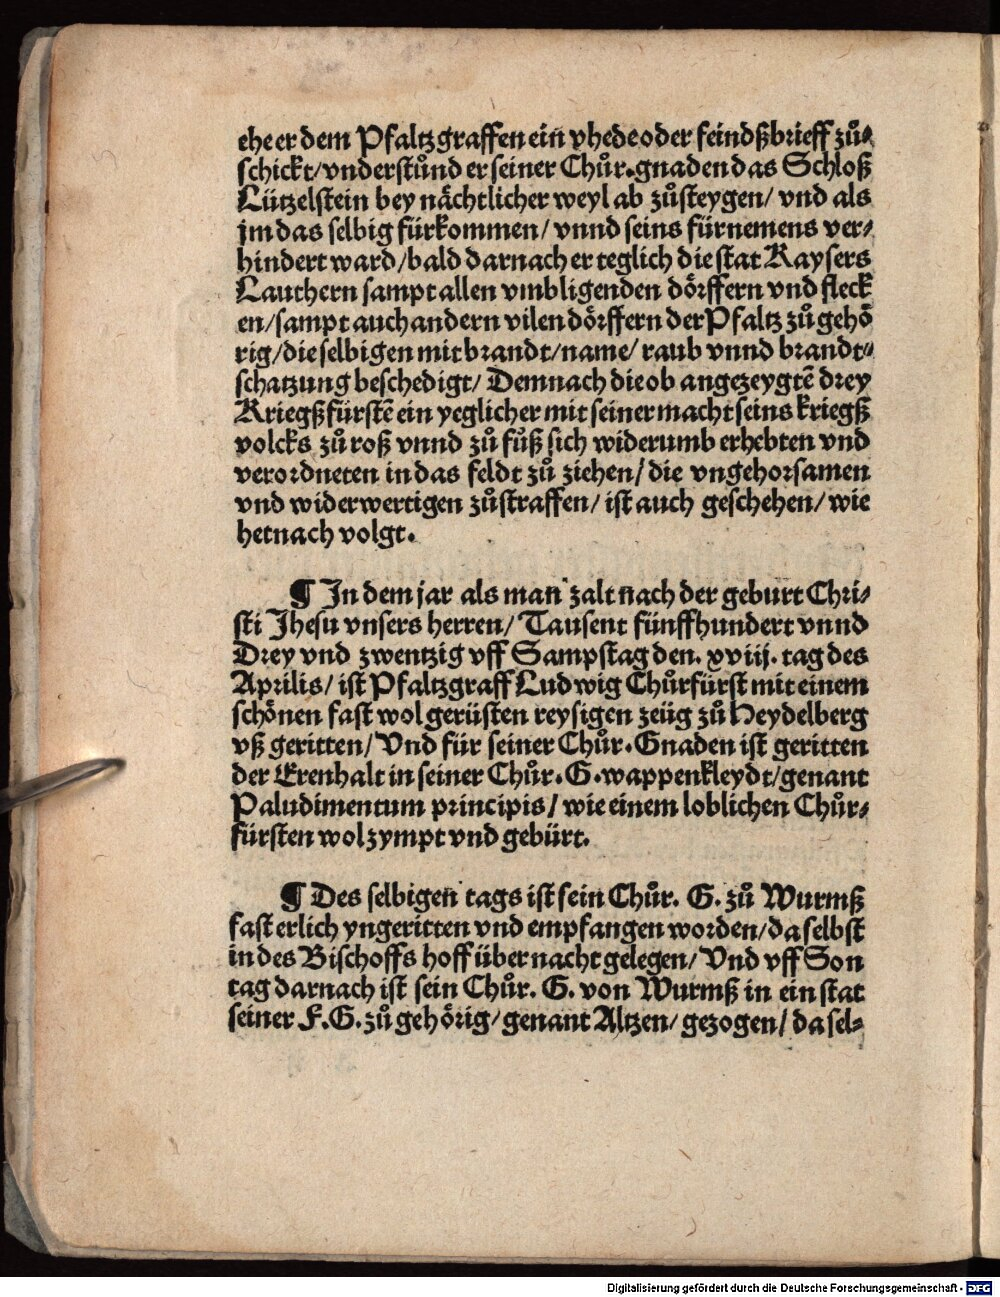 ehe er dem Pfaltzgraffen ein vhede oder feindßbrieff zů⸗
schickt/ vnderstůnd er seiner Chůr. gnaden das Schloß
Lützelstein bey nächtlicher weyl ab zůsteygen/ vnd als
jm das selbig fürkommen/ vnnd seins fürnemens ver⸗
hindert ward/ bald darnach er teglich die stat Kaysers
Lauthern sampt allen vmbligenden dörffern vnd fleck
en/ sampt auch andern vilen dörffern der Pfaltz zů gehö
rig/ die selbigen mit brandt/ name/ raub vnnd brandt⸗
schatzung beschedigt/ Demnach die ob angezeygtē drey
Kriegßfürstē ein yeglicher mit seiner macht seins kriegß
volcks zů roß vnnd zů fůß sich widerumb erhebten vnd
verordneten in das feldt zů ziehen/ die vngehorsamen
vnd widerwertigen zůstraffen/ ist auch geschehen/ wie
hetnach volgt.
¶ In dem jar als man zalt nach der geburt Chri⸗
sti Jhesu vnsers herren/ Tausent fünffhundert vnnd
Drey vnd zwentzig vff Sampstag den. xviij. tag des
Aprilis/ ist Pfaltzgraff Ludwig Chůrfürst mit einem
schönen fast wol gerüsten reysigen zeüg zů Heydelberg
vß geritten/ Vnd für seiner Chůr. Gnaden ist geritten
der Erenhalt in seiner Chůr. G. wappenkleydt/ genant
Paludimentum principis/ wie einem loblichen Chůr⸗
fürsten wol zympt vnd gebürt.
¶ Des selbigen tags ist sein Chůr. G. zů Wurmß
fast erlich yngeritten vnd empfangen worden/ da selbst
in des Bischoffs hoff über nacht gelegen/ Vnd vff Son
tag darnach ist sein Chůr. G. von Wurmß in ein stat
seiner F. G. zů gehörig/ genant Altzen/ gezogen/ da sel⸗
Digitalisierung gefördert durch die Deutsche Forschungsgemeinschaft - DFG